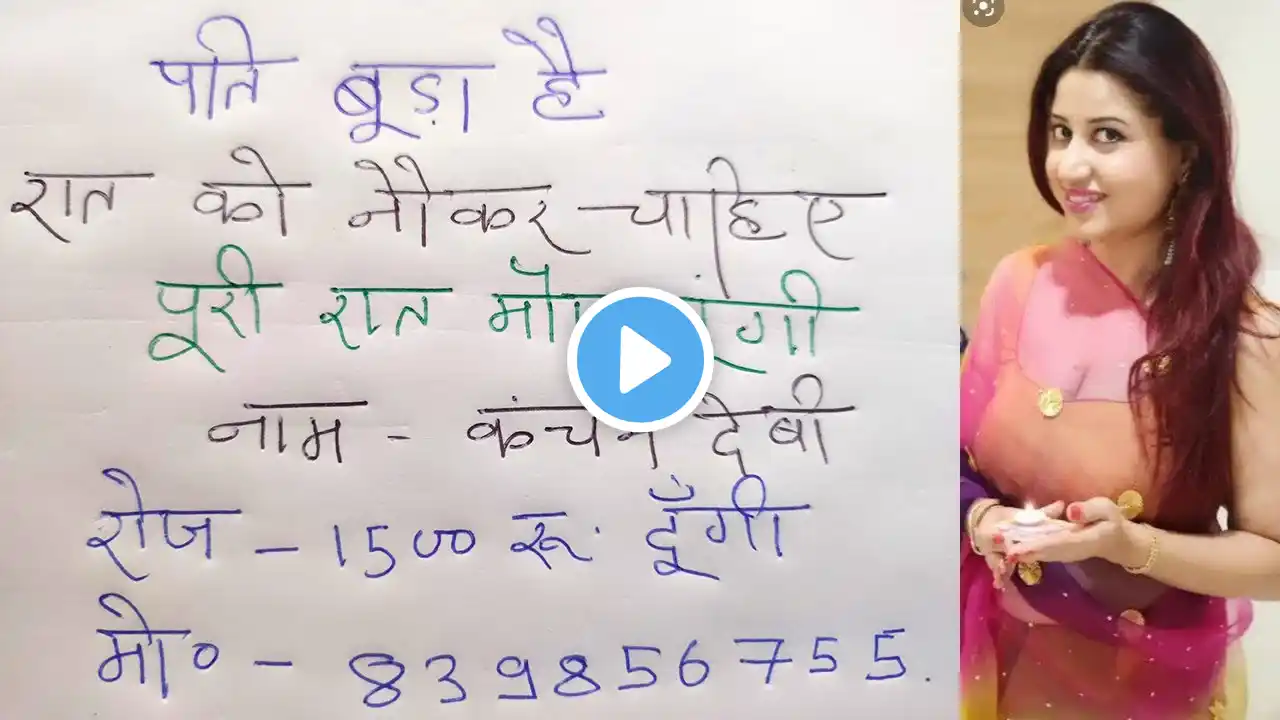 पति बूड़ा है
रात को नौकर चाहिए
पूरी रात
नाम - कंचन देबी
रोज - 1500 रू. दूँगी
मो० - 839856755.